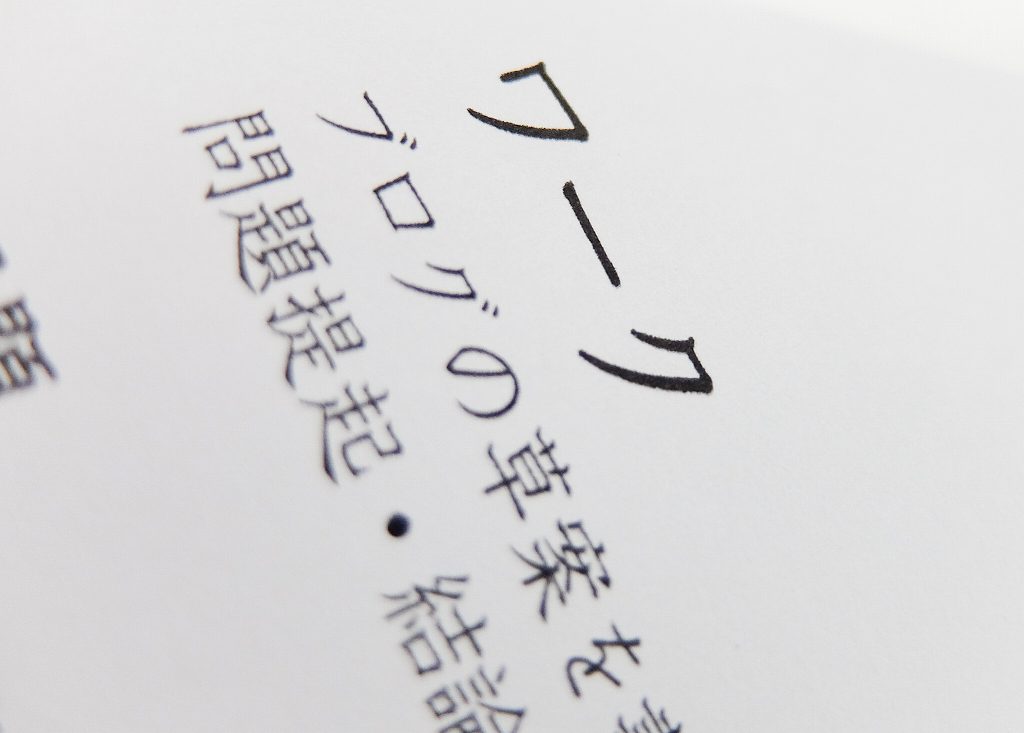 ワーク
ブログの草案を
問題提起・結論